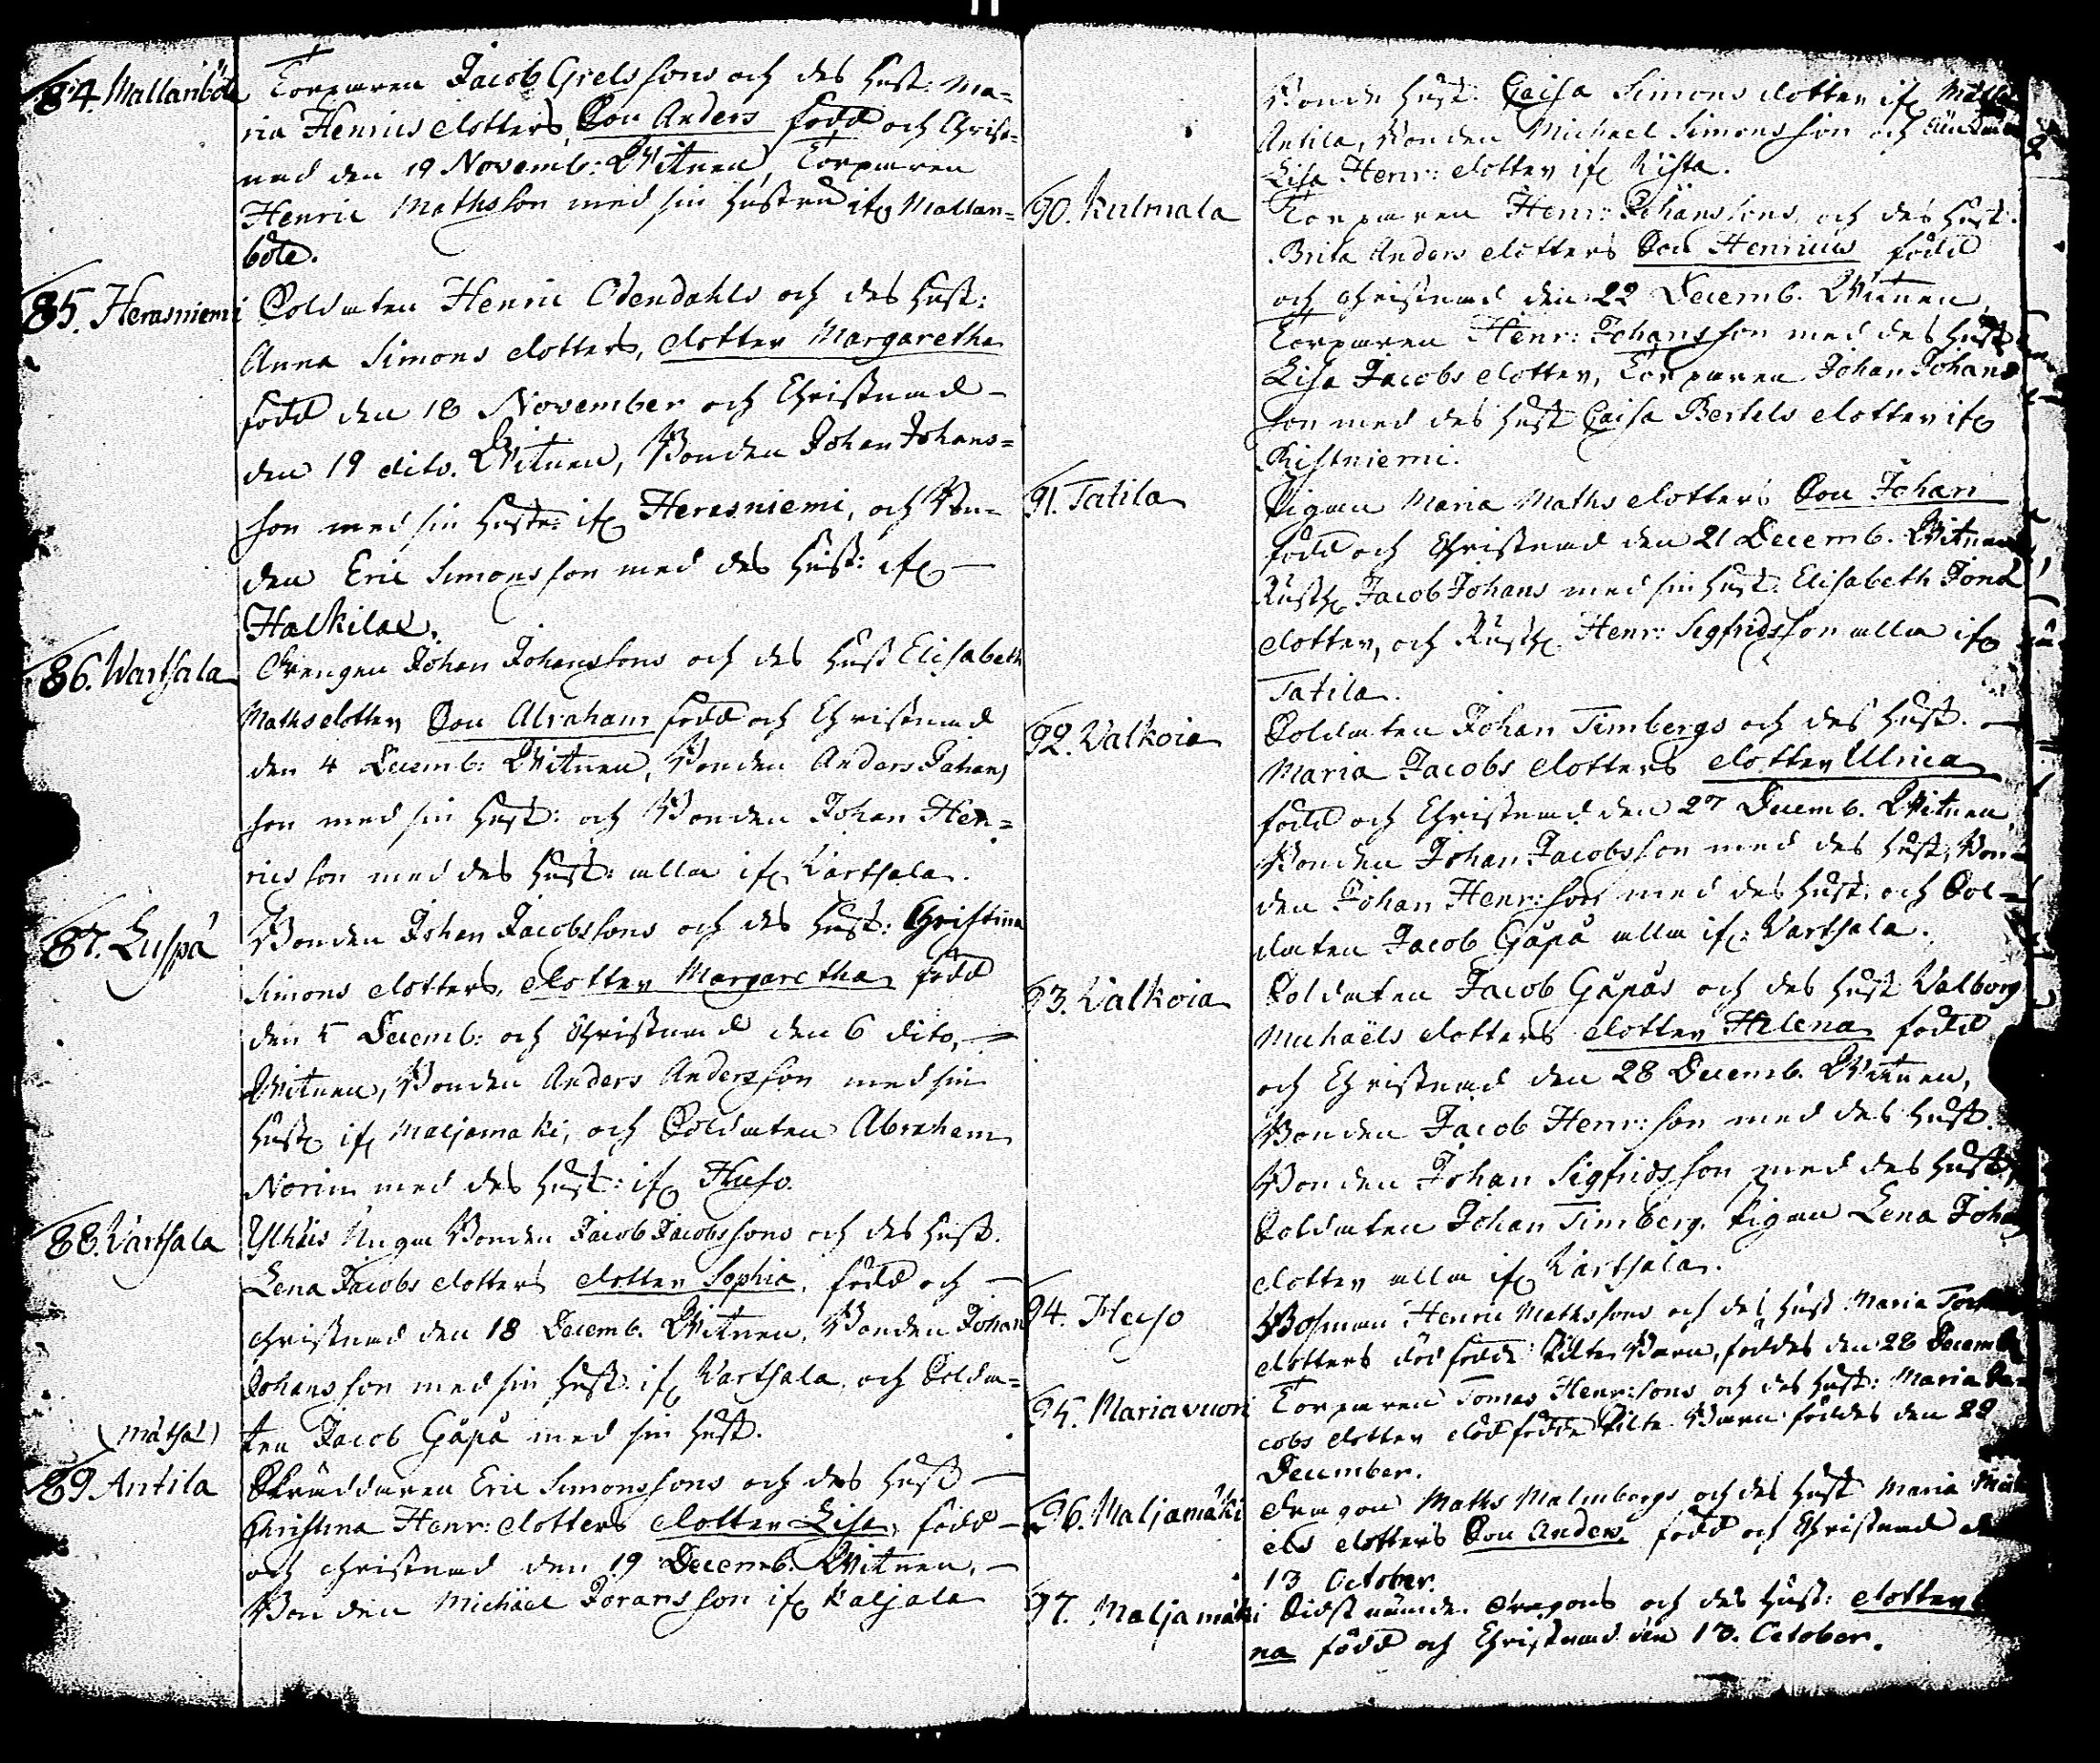 84. Mallanböle
Torparen Jacob Grelssons och des Hust: Ma=
ria Henrics dotters, Son Anders född och Christ=
nad den 19 Novemb: Witnen, Torparen
Henric Mathsson med sin hustru ifr Mallan=
böle.
85. Herasniemi
Soldaten Henric Odendahls och des Hust:
Anna Simons dotters, dotter Margaretha
född den 18 November och Christnad
den 19 dito. Witnen, Bonden Johan Johans=
son med sin hustr: ifr Herasniemi, och Bon=
den Eric Simonsson med des Hust: ifr
Halkilax.
86. Wartsala
Drengen Johan Johanssons och des Hust Elisabeth
Mathsdotter Son Abraham född och Christnad
den 4 Decemb: Witnen, Bonden Anders Johans
son med sin Hust: och Bonden Johan Hen=
ricsson med des Hust: alla ifr Vartsala.
87. Luspå
Bonden Johan Jacobssons och des Hust: Christina
Simons dotters, dotter Margaretha född
den 5 Decemb: och Christnad den 6 dito,
Witnen, Bonden Anders Andersson med sin
Hust ifr Maljamaki, och Soldaten Abraham
Norim med des Hust: ifr Huso.
88. Vartsala
Ylhäis Unga Bonden Jacob Jacobssons och des Hust.
Lena Jacobs dotters dotter Sophia, född och
christnad den 18 Decemb. Witnen, Bonden Johan
Johansson med sin Hust: ifr Vartsala, och Solda=
ten Jacob Gåpå med sin Hust.
(Mätsal)
89. Antila
Skräddaren Eric Simonssons och des Hust
Christina Henr: dotters dotter Lisa, född
och christnad den 19 Decemb. Witnen,
Bonden Michael Joransson ifr Kaljala
Bonde Hust: Caisa Simons dotter ifr
Antila, Bonden Michael Simonsson och
Lisa Henr: dotter ifr Rista.
90. Kulmala
Torparen Henr: Johanssons, och des Hust.
Brita Anders dotters Son Henricus född
och christnad den 22 Decemb. Witnen,
Torparen Henr: Johansson med des Hust
Lisa Jacobs dotter, Torparen Johan Johans
son med des Hust Caisa Bertels dotter ifr
Ristniemi.
91. Tatila
Pigan Maria Maths dotters Son Johan
född och Christnad den 21 Decemb. Witnen
Rusth: Jacob Johans med sin Hust: Elisabeth
dotter, och Rusth: Henr: Sigfridsson alla ifr
Tatila.
92. Valkoia
Soldaten Johan Timbergs och des Hust.
Maria Jacobs dotters dotter Ulrica
född och Christnad den 27 Decemb. Witnen,
Bonden Johan Jacobsson med des Hust, Bon=
den Johan Henr: son med des Hust: och Sol=
daten Jacob Gåpå alla ifr: Vartsala.
93. Valkoia
Soldaten Jacob Gåpås och des Hust Valborg
Michaëls dotters dotter Helena född
och Christnad den 28 Decemb. Witnen,
Bonden Jacob Henr: son med des Hust.
Bonden Johan Sigfridsson med des Hust,
Soldaten Johan Timberg, Pigan Lena Johans
dotter alla ifr Vartsala.
94. Huso
Bosman Henric Mathssons och des Hust Maria
dotters dödfödde Pilte Barn, föddes den 28 Decemb
95. Mariavuori
Torparen Tomas Henr: sons och des Hust: Maria Ja=
cobs dotter dödfödde Pilte Barn föddes den 29
December.
96. Maljamäki
Dragon Maths Malmbergs och des Hust Maria
els dotters Son Anders, född och Christnad
13 October.
97. Maljamäki
Sidstnämde Dragons och des Hust: dotter
na född och Christnad den 13. October.